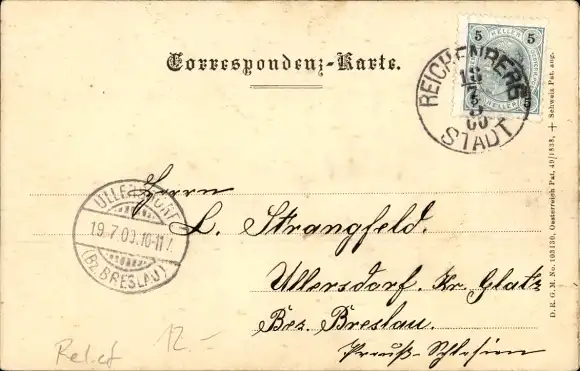 Correspondenz-Karte.
5 HELLER 5
REICHENBERG
STADT
Herrn
L. Strangfeld.
Ullersdorf. Kr. Glatz
Bez. Breslau.
Preuß-Schlesien
ULLERSDORF
19.7.00.10-11V.
(BZ. BRESLAU)
Relief 12.-
D. R. G. M. No. 103130. Oesterreich Pat. 49/1838. + Schweiz Pat. ang.